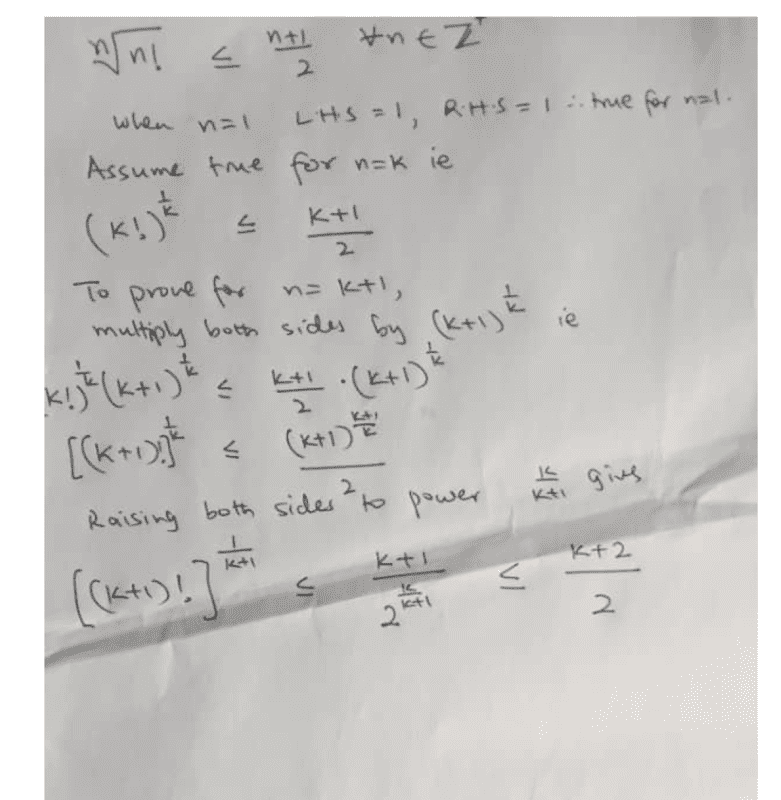 ⁿ√n! ≤ (n+1)/2 ∀n ∈ Z⁺
when n=1 L·H·S = 1, R·H·S = 1 ∴ true for n=1.
Assume true for n=K ie
(K!)^(1/K) ≤ (K+1)/2
To prove for n= K+1,
multiply both sides by (K+1)^(1/K) ie
K!)^(1/K) (K+1)^(1/K) ≤ (K+1)/2 · (K+1)^(1/K)
[(K+1)!]^(1/K) ≤ (K+1)^((K+1)/K) / 2
Raising both sides to power K/(K+1) gives
[(K+1)!]^(1/(K+1)) ≤ (K+1)/2^(K/(K+1)) ≤ (K+2)/2